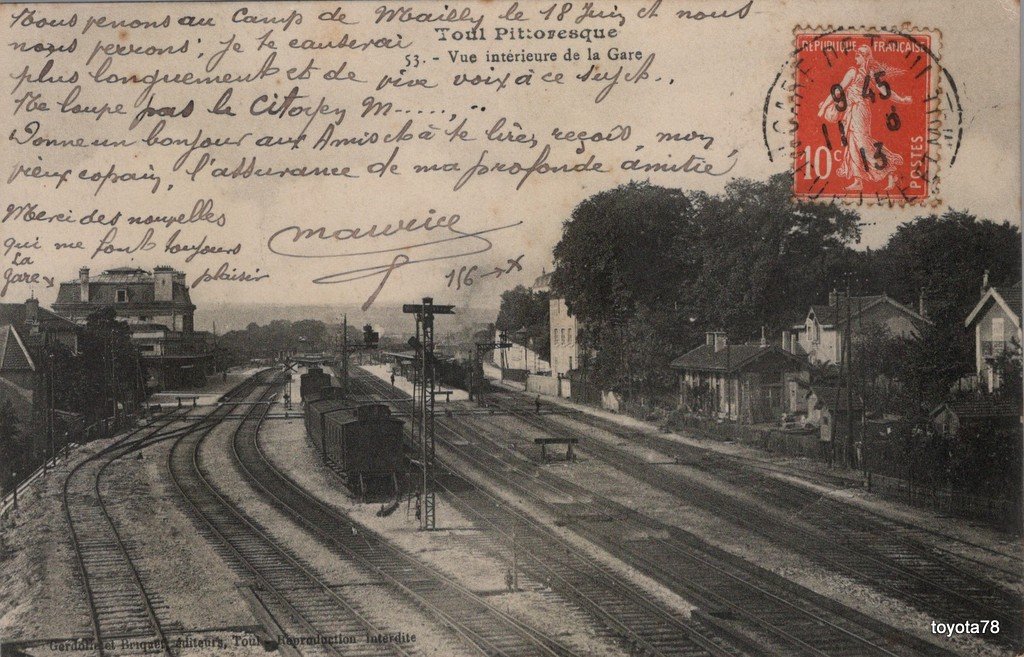 Nous venons au Camp de Mailly le 18 Juin et nous
nous verrons; je te causerai
Toul Pittoresque
53. - Vue intérieure de la Gare
plus longuement et de vive voix à ce sujet..
Ne loupe pas le Citoyen M......, ..
Donne un bonjour aux Amis et à te lire, reçois, mon
vieux copain, l'assurance de ma profonde amitié,
Merci des nouvelles
qui me font toujours
plaisir
La
Gare x
Maurice
156 → x
RÉPUBLIQUE FRANÇAISE
10c
POSTES
9 45
11 6
13
Gerdolle et Briquet, éditeurs, Toul - Reproduction Interdite
toyota78